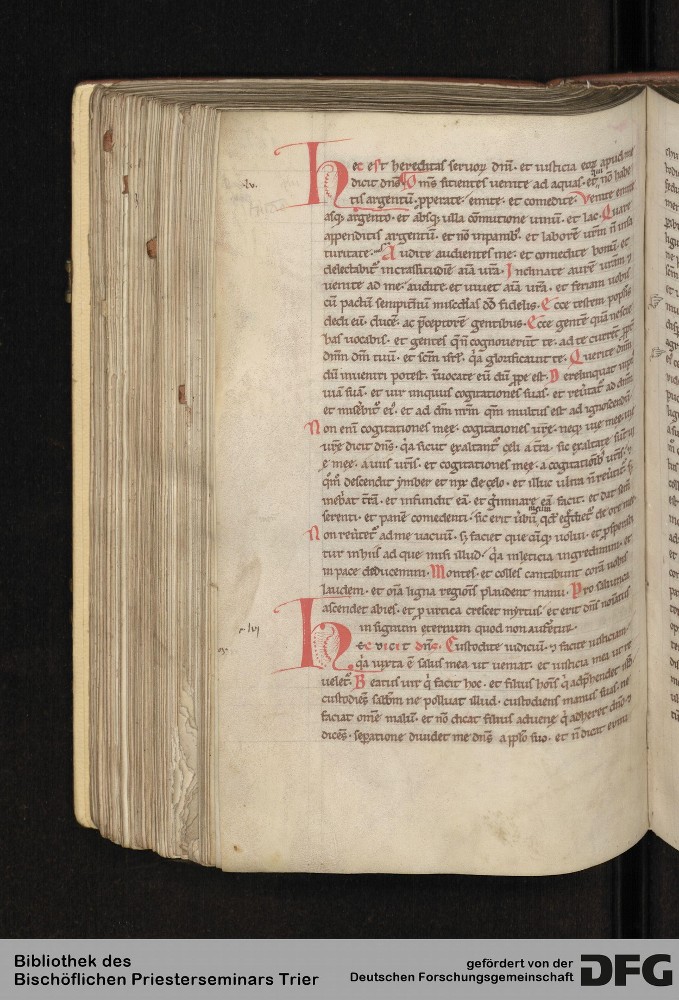 lv.
Hec est hereditas seruoꝝ dn̄i. et iusticia eoꝝ apud me
dicit dn̄s. Om̄s sitientes uenite ad aquas. et qui nō habe
tis argentū. ꝓperate. emite. et comedite. Venite emite
absq; argento. et absq; ulla cōmutatione uinū. et lac. Quare
appenditis argentū. et nō in panib;. et laborē ur̄m n̄ in sa
turitate. Audite audientes me. et comedite bonū. et
delectabit᷑ in crassitudie aīa ur̄a. Inclinate aurē ur̄am
uenite ad me. audite et uiuet aīa ur̄a. et feriam uobis
cū pactū sempit̄nū miscd̄ias dd̄ fidelis. Ecce testem popl̓is
dedi eū. ducē. ac p̄ceptorē gentibus. Ecce gentē quā nescie
bas uocabis. et gentes q̄ n̄ cognouerūt te. ad te current ꝓpt̓
dn̄m dm̄ tuū. et sc̄m isrl̓. q̓a glorificauit te. Querite dn̄m
dū inueniri potest. inuocate eū dū ꝓpe est. Derelinquat impi᷒
uiā suā. et uir iniquus cogitationes suas. et reu̓tat᷑ ad dn̄m
et miseb̓it᷑ ei᷒. et ad dm̄ nr̄m qm̄ multus est ad ignoscendū.
Non enī cogitationes mee. cogitationes ur̄e. neq; uie mee. uie
ur̄e dicit dn̄s. q̓a sicut exaltant᷑ celi a t̄ra. sic exaltate sunt ui
e mee. a uiis ur̄is. et cogitationes mee. a cogitationib; ur̄is.
qm̄ descendit ymber et nyx de celo. et illuc ultra n̄ reu̓tit᷑.
inebriat t̄rā. et infundit eā. et g̓minare eā facit. et dat sem̄
serenti. et panē comedenti. sic erit u̓bū meum qd̓ egdiet᷑ de ore meo
Non reu̓tet᷑ ad me uacuū. s; faciet quecūq; uolui. et ꝓsperabi
tur in his ad que misi illud. q̓a in leticia ingrediemini. et
in pace deducemini. Montes. et colles cantabunt corā uobis
laudem. et om̄ia ligna regionis plaudent manu. Pro saliunca
ascendet abies. et ꝓ urtica crescet myrtus. et erit dn̄s noīatus
in signum eternum quod non auferetur.
lvi
Hec dicit dn̄s. Custodite iudiciū. et facite iusticiam.
q̓a iuxta ē salus mea ut ueniat. et iusticia mea ut re
uelet᷑. Beatus uir q̓ facit hoc. et filius hoīs q̓ adp̄hendet istd̓
custodiēs sabbm̄ ne polluat illud. custodiens manus suas. ne
faciat om̄e malū. et nō dicat filius aduene q̓ adheret dn̄o.
dicēs. separatione diuidet me dn̄s a ppl̓o suo. et n̄ dicat eunu
Bibliothek des
Bischöflichen Priesterseminars Trier
gefördert von der
Deutschen Forschungsgemeinschaft
DFG